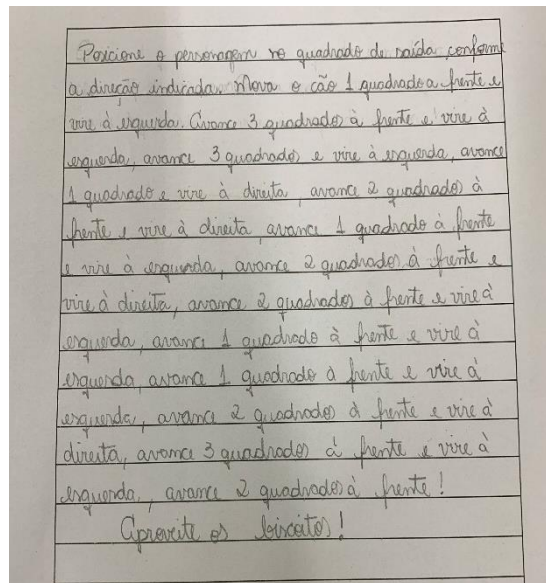 Posicione o personagem no quadrado de saída conforme
a direção indicada. Mova o cão 1 quadrado a frente e
vire à esquerda. Avance 3 quadrados à frente e vire à
esquerda, avance 3 quadrados e vire à esquerda, avance
1 quadrado e vire à direita, avance 2 quadrados à
frente e vire à direita, avance 1 quadrado à frente
e vire à esquerda, avance 2 quadrados à frente e
vire à direita, avance 2 quadrados à frente e vire à
esquerda, avance 1 quadrado à frente e vire à
esquerda, avance 1 quadrado à frente e vire à
esquerda, avance 2 quadrados à frente e vire à
direita, avance 3 quadrados à frente e vire à
esquerda, avance 2 quadrados à frente!
Aproveite os biscoitos!